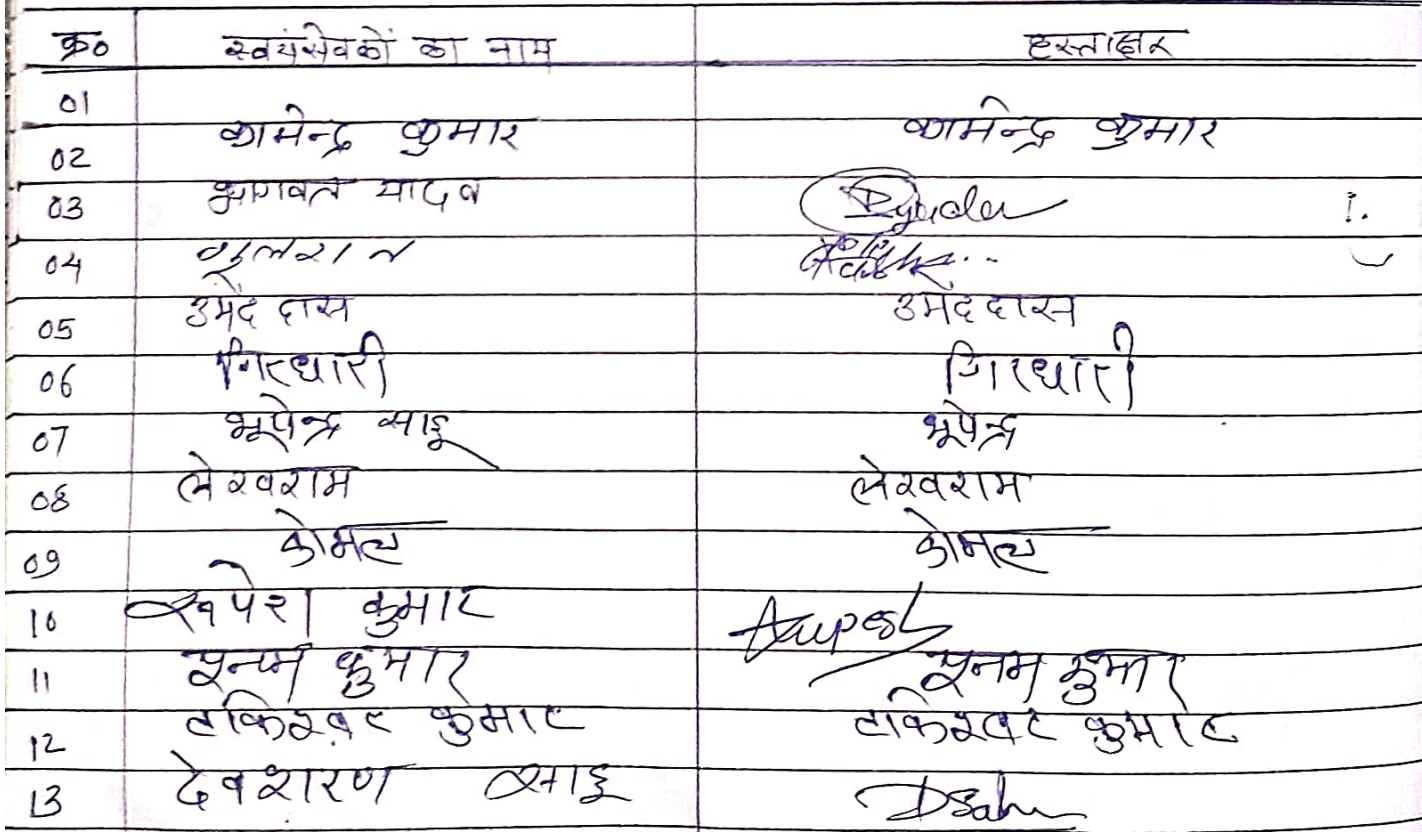 क्र० स्वयंसेवकों का नाम हस्ताक्षर
01
02 कामेन्द्र कुमार कामेन्द्र कुमार
03 भागवत यादव Dyadav i.
04 गुलशन
05 उमेंद दास उमेंद दास
06 गिरधारी गिरधारी
07 भूपेन्द्र साहू भूपेन्द्र
08 लेखराम लेखराम
09 कोमल कोमल
10 रूपेश कुमार Rupesh
11 पूनम कुमार पूनम कुमार
12 टकेश्वर कुमार टकेश्वर कुमार
13 देवशरण साहू Dsahu